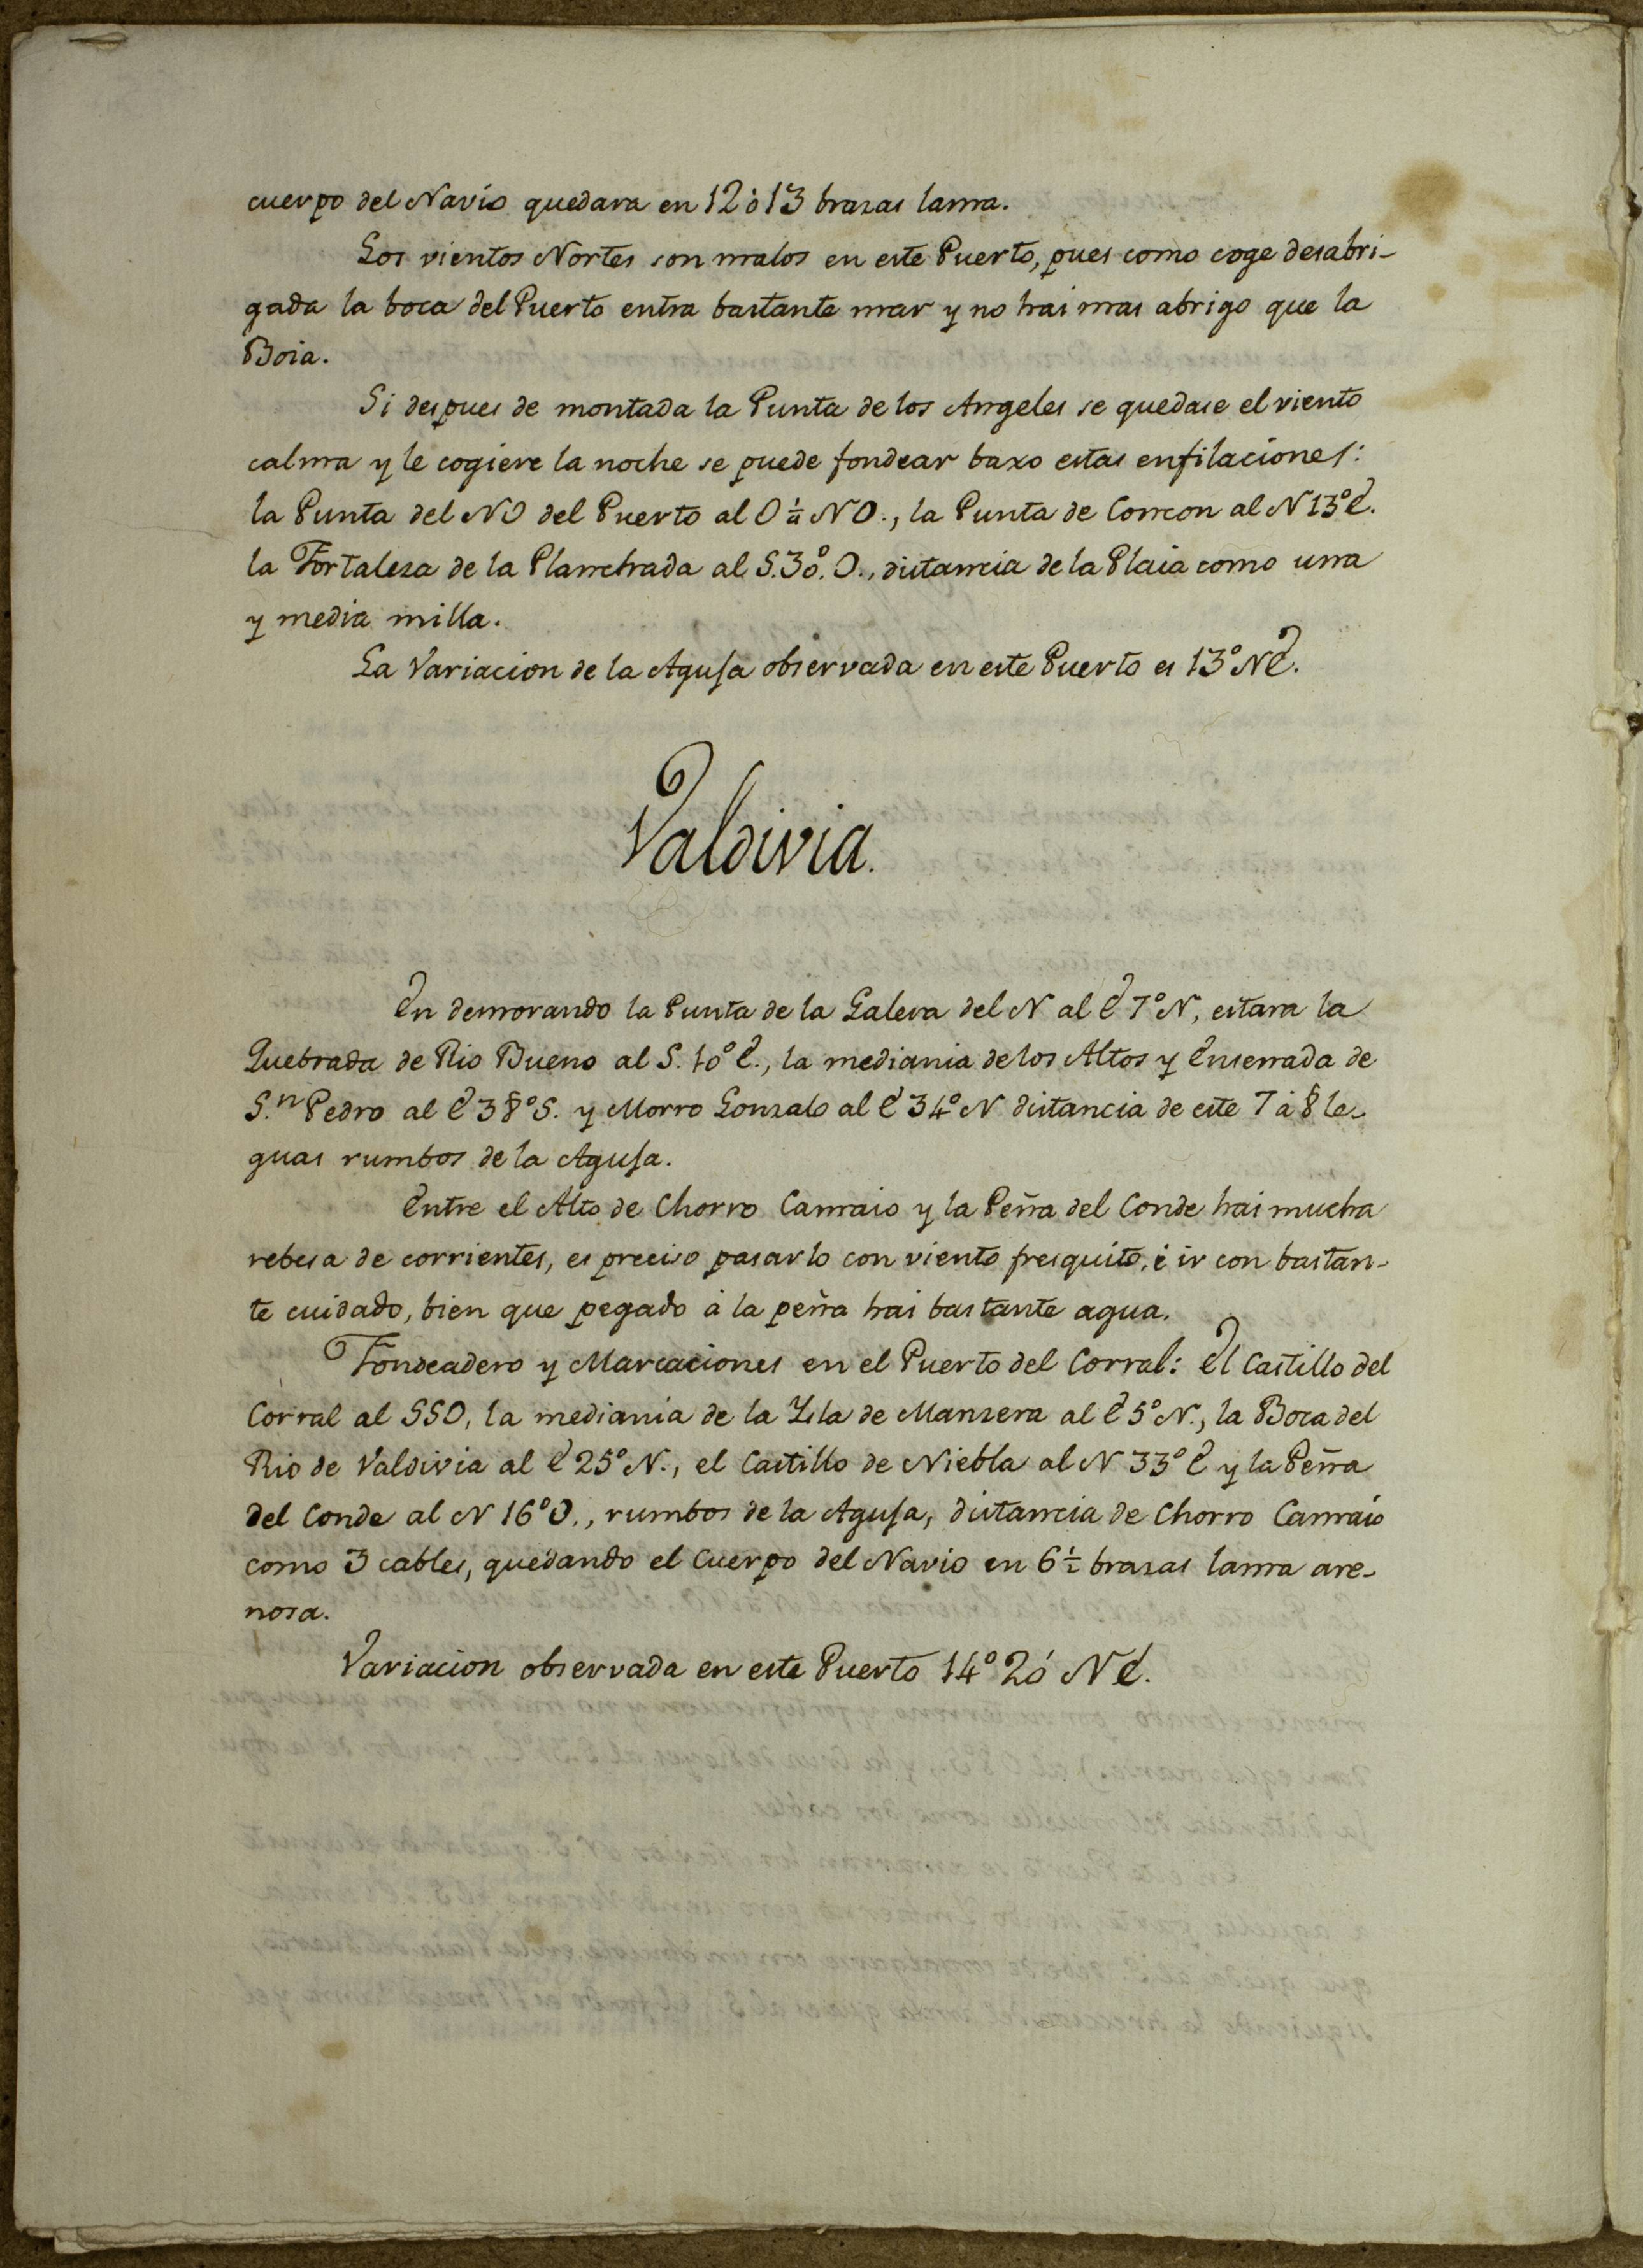 cuerpo del Navio quedara en 12 ò 13 brazas lama.
Los vientos Nortes son malos en este Puerto, pues como coge desabri-
gada la boca del Puerto entra bastante mar y no hai mas abrigo que la
Boia.
Si despues de montada la Punta de los Angeles se quedase el viento
calma y le cogiere la noche se puede fondear baxo estas enfilaciones:
la Punta del NO del Puerto al O ¼ NO., la Punta de Concon al N 13° E.
la Fortaleza de la Planchada al S. 30°. O., distancia de la Plaia como una
y media milla.
La Variacion de la Aguja observada en este Puerto es 13° NE.
Valdivia.
En demorando la Punta de la Galera del N al E 7° N, estara la
Quebrada de Rio Bueno al S. 10° E., la mediania de los Altos y Ensenada de
S.n Pedro al E 38° S. y Morro Gonzalo al E 34° N distancia de este 7 à 8 le-
guas rumbos de la Aguja.
Entre el Alto de Chorro Camaio y la Peña del Conde hai mucha
rebesa de corrientes, es preciso pasarlo con viento fresquito, è ir con bastan-
te cuidado, bien que pegado à la peña hai bastante agua.
Fondeadero y Marcaciones en el Puerto del Corral: El Castillo del
Corral al SSO, la mediania de la Ysla de Manzera al E 5° N., la Boca del
Rio de Valdivia al E 25° N., el Castillo de Niebla al N 33° E y la Peña
del Conde al N 16° O., rumbos de la Aguja, distancia de Chorro Camaio
como 3 cables, quedando el Cuerpo del Navio en 6 ½ brazas lama are-
nosa.
Variacion observada en este Puerto 14° 20' NE.